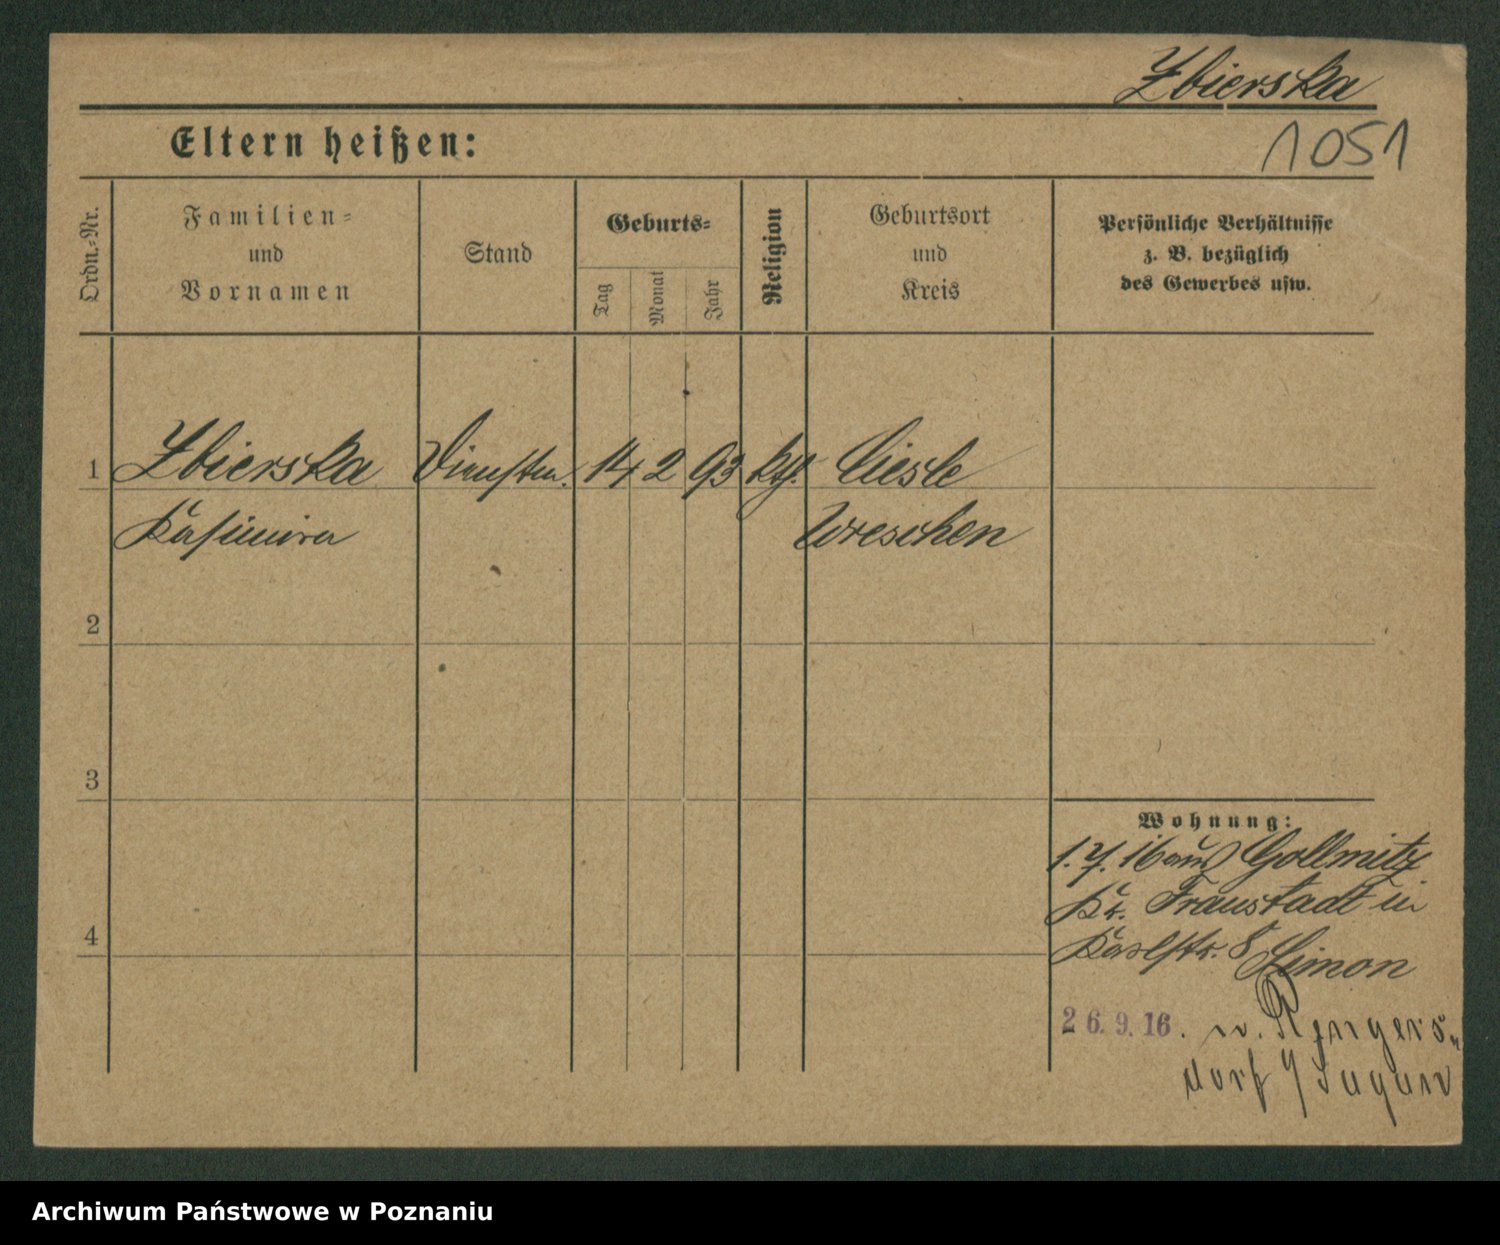 Zbierska
1051
Eltern heißen:
Ordn.-Nr.
Familien-
und
Vornamen
Stand
Geburts-
Tag
Monat
Jahr
Religion
Geburtsort
und
Kreis
Persönliche Verhältnisse
z. B. bezüglich
des Gewerbes usw.
1 Zbierska Dienstm. 14 2 93 kth. Ciesle
Kasimira Wreschen
2
3
4
Wohnung:
1. 7. 16 aus Gollmitz
Kr. Fraustadt in
Karlstr. 8 Simon
26. 9. 16. n. Rengers-
dorf / Sagan
Archiwum Państwowe w Poznaniu